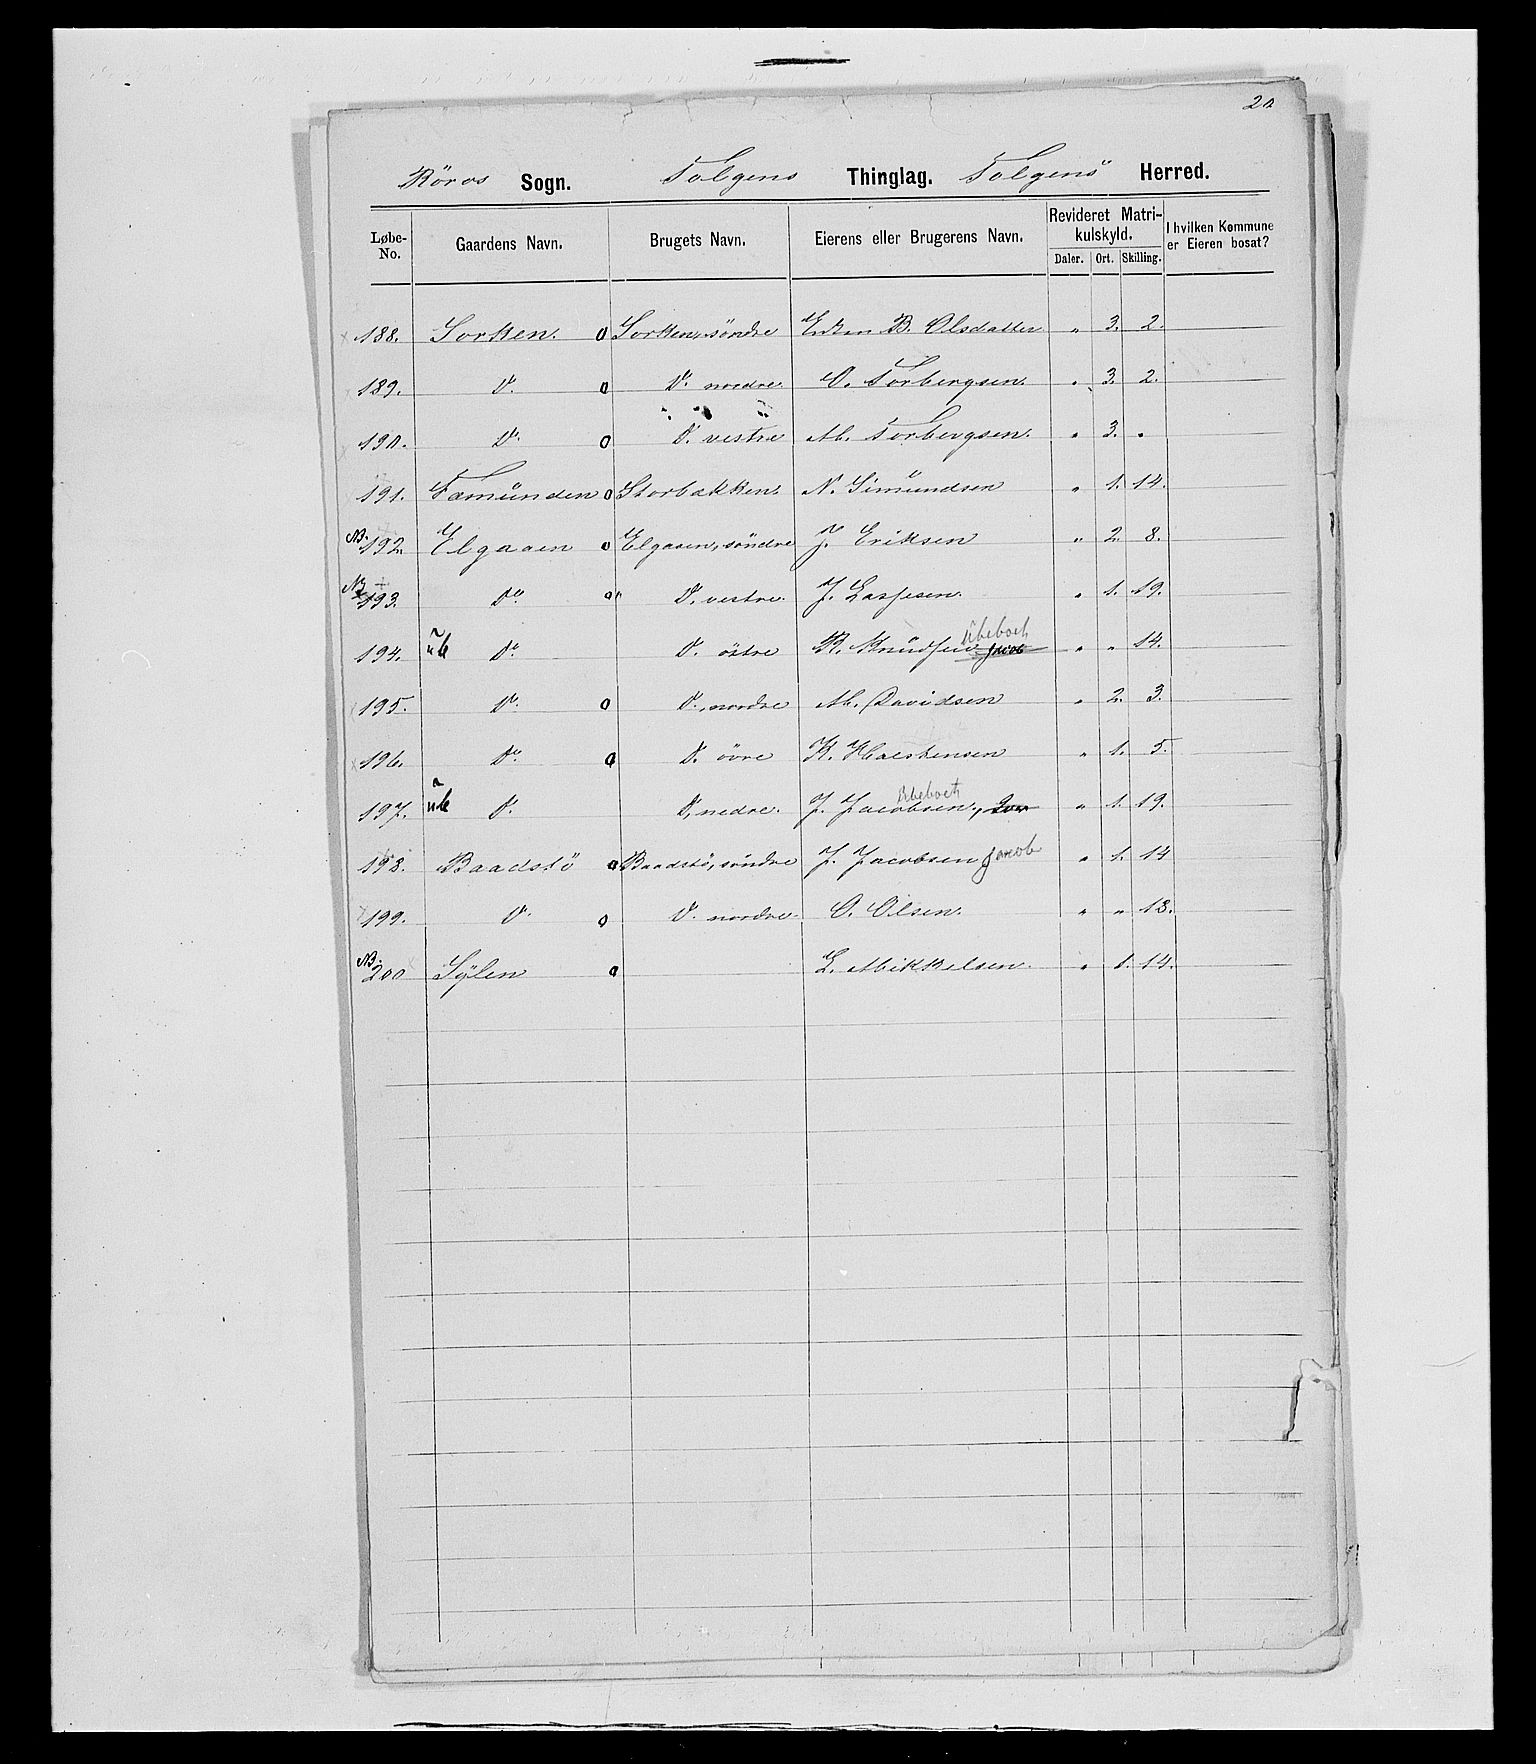 20
Röros Sogn. Tolgens Thinglag. Tolgens Herred.
Løbe-No. Gaardens Navn. Brugets Navn. Eierens eller Brugerens Navn. Revideret Matrikulskyld. Daler. Ort. Skilling. I hvilken Kommune er Eieren bosat?
188. Sorken. o Sorken, söndre Enken B. Olsdatter " 3. 2.
189. Do o Do nordre O. Torbergsen " 3. 2.
190. Do o Do vestre M. Torbergsen. " 3. "
191. Fæmunden o Storbakken. N. Simundsen " 1. 14.
NB. 192. Elgaaen o Elgaaen, söndre J. Eriksen " 2. 8.
NB 193. Do o" Do vestre. J. Lassesen. " 1. 19.
194. ub Do Do östre K. Knudsen Ubeboet " " 14.
195. Do o Do, nordre M. Davidsen " 2. 3.
196. Do o Do övre K. Haestensen " 1. 5.
197. ub Do Do, nedre. J. Jacobsen, Ubeboet " 1. 19.
198. Baadstö o Baadstö, söndre J. Jacobsen Jacob " 1. 14
199. Do o Do nordre. O. Olsen. " " 13.
NB. 200 Sylen o E. Mikkelsen. " 1. 14.